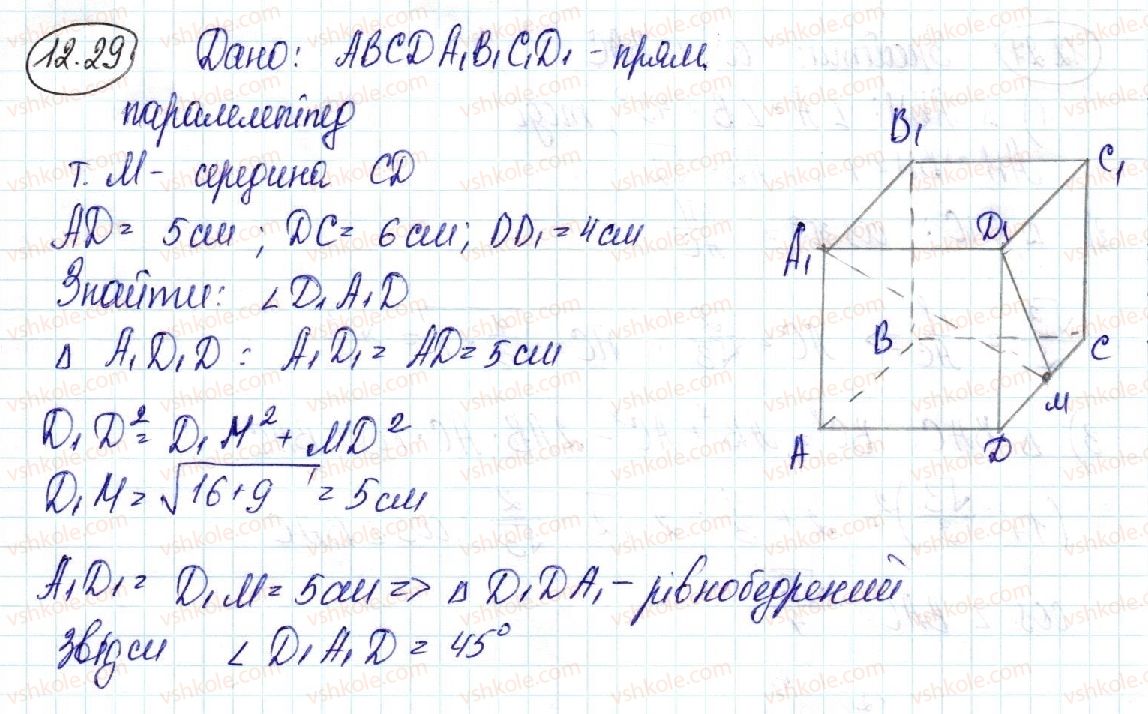 12.29 Дано: ABCDA₁B₁C₁D₁ - прям.
паралелепіпед
т. M - середина CD
AD = 5см ; DC = 6см; DD₁ = 4см
Знайти: ∠D₁A₁D
Δ A₁D₁D : A₁D₁ = AD = 5см
D₁D² = D₁M² + MD²
D₁M = √16+9 = 5см
A₁D₁ = D₁M = 5см => Δ D₁DA₁ - рівнобедрений
Звідси ∠D₁A₁D = 45°
B₁
C₁
A₁
D₁
B
C
M
A
D
vshkole.com